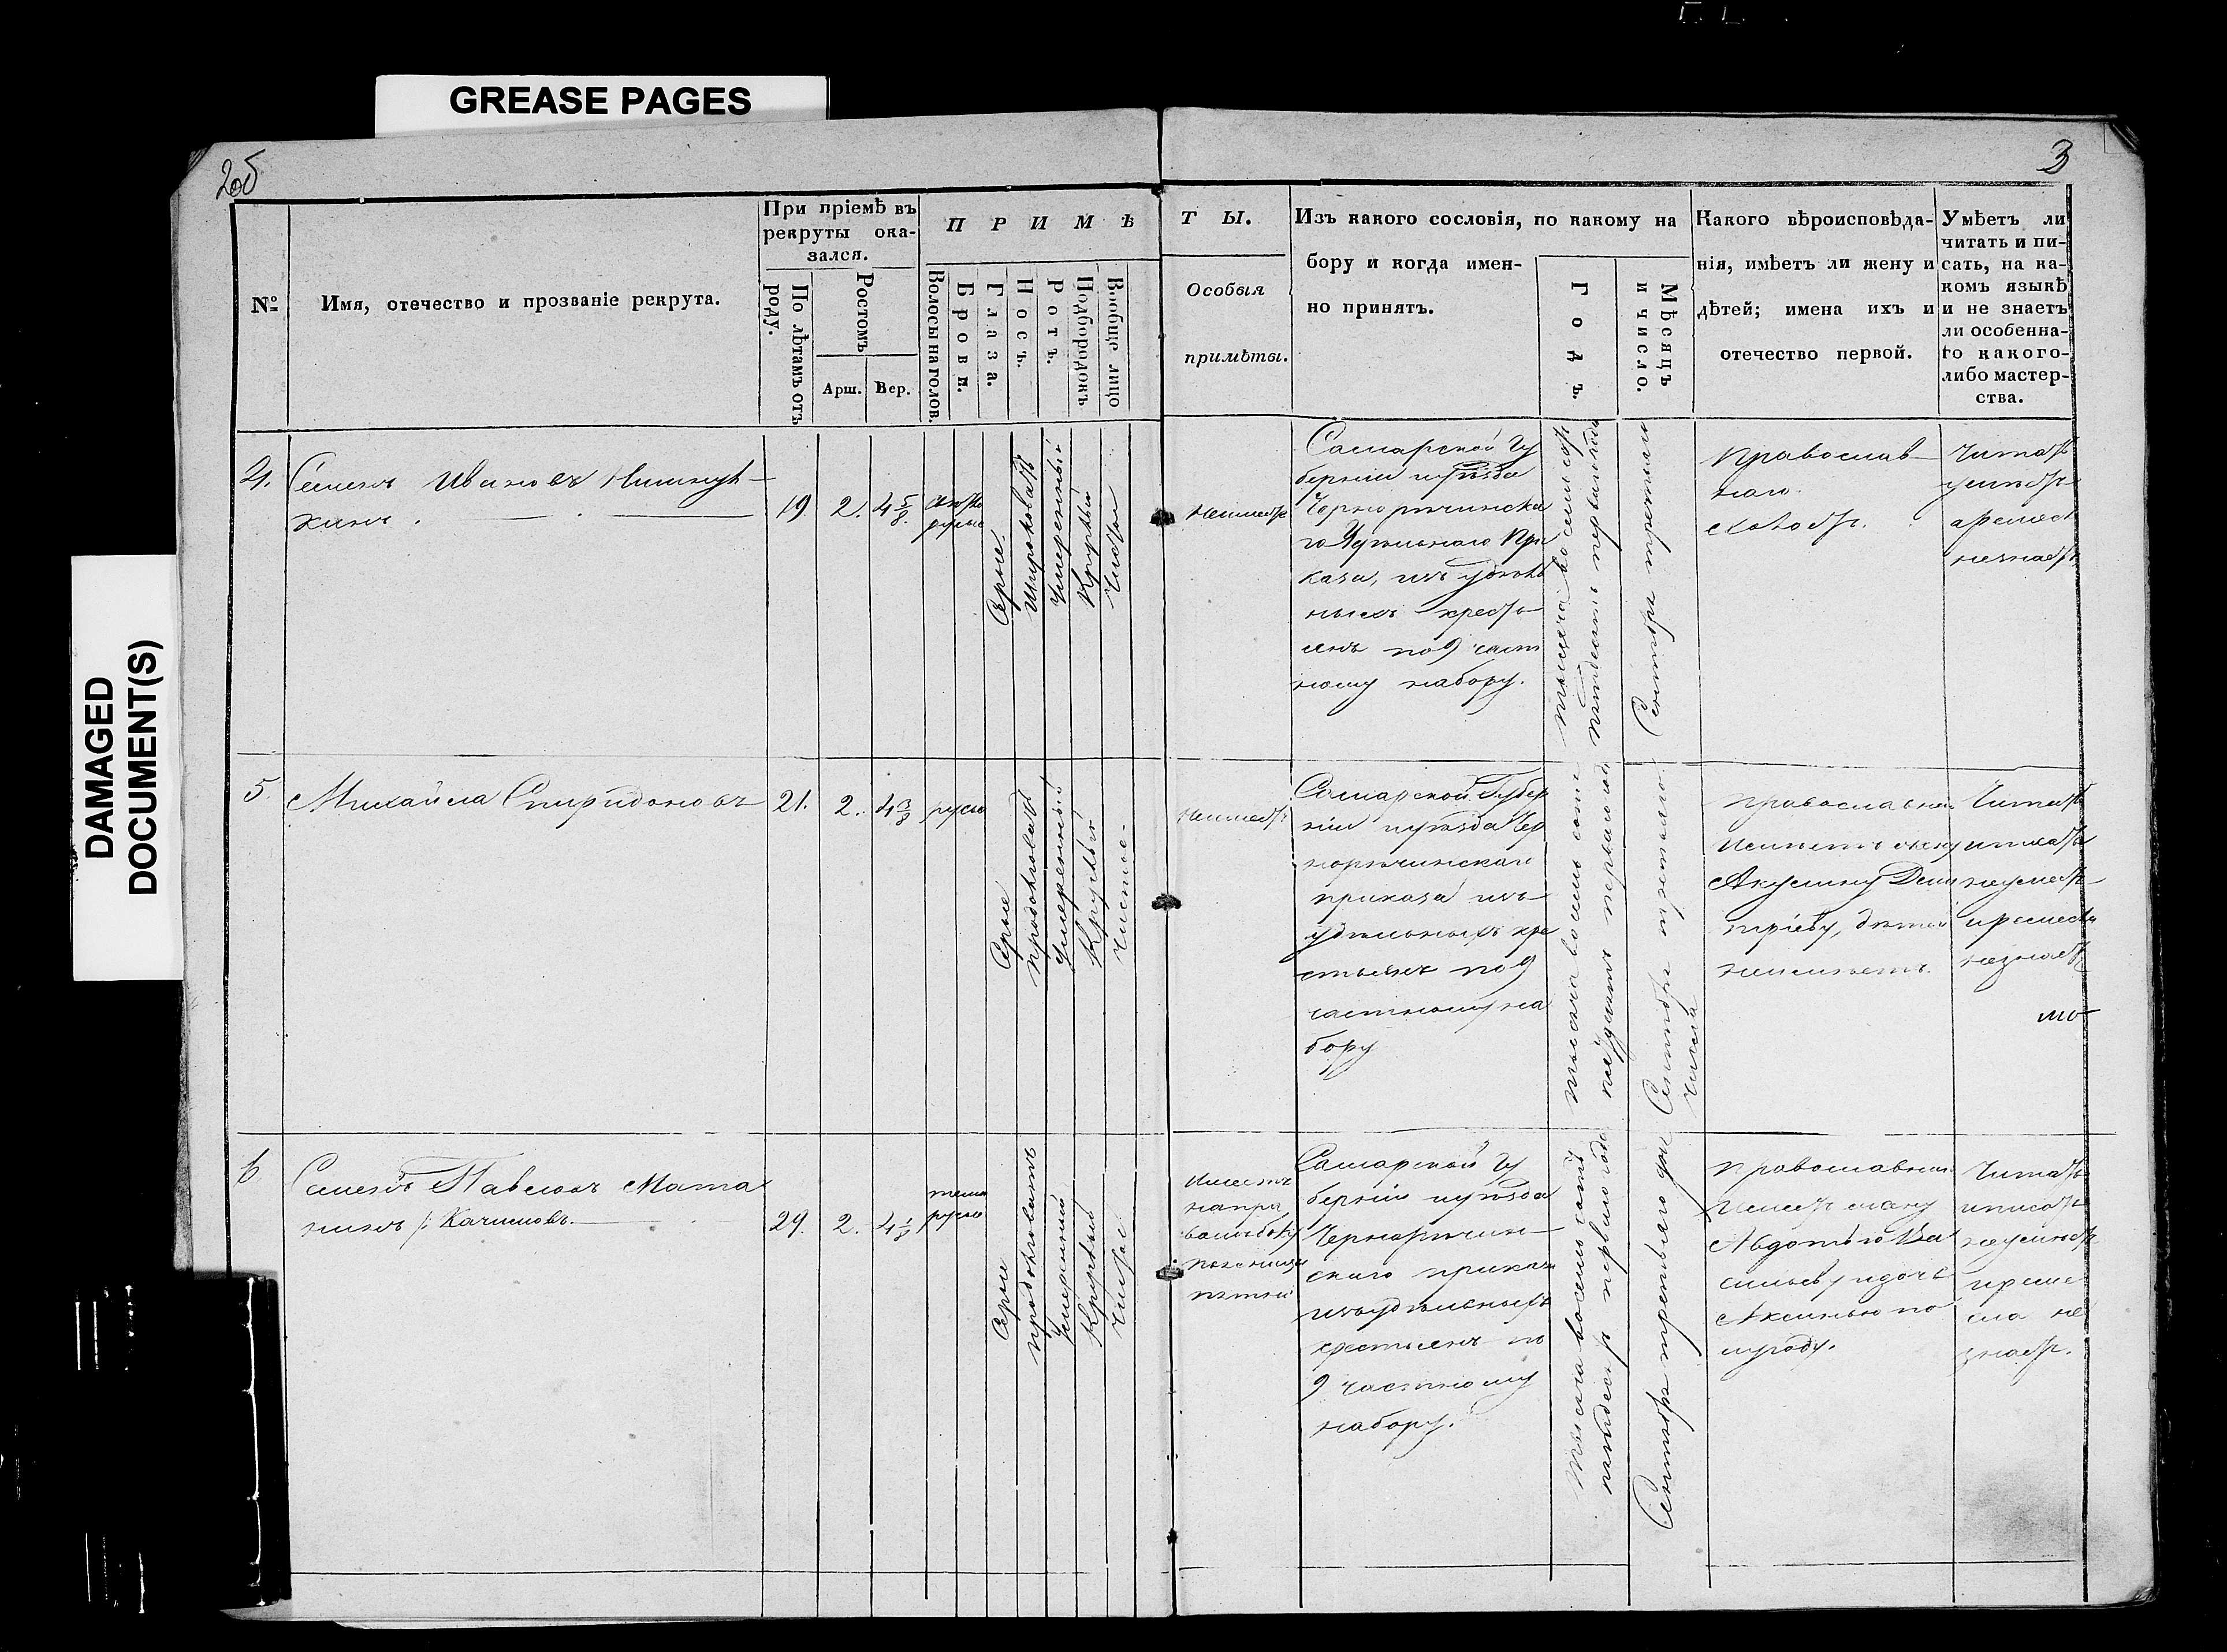 GREASE PAGES
DAMAGED
DOCUMENT(S)
2об
3
№
Имя, отечество и прозваніе рекрута.
При пріемѣ въ
рекруты ока-
зался.
По лѣтамъ отъ
роду.
Ростомъ
Арш.
Вер.
П Р И М Ѣ
Волосы на голов.
Брови.
Глаза.
Носъ.
Ротъ.
Подбородокъ
Вообще лицо
Т Ы.
Особыя
примѣты.
Изъ какого сословія, по какому на
бору и когда имен-
но принятъ.
Годъ.
Мѣсяцъ
и число.
Какого вѣроисповѣда-
нія, имѣетъ ли жену и
дѣтей; имена ихъ и
отечество первой.
Умѣетъ ли
читать и пи-
сать, на ка-
комъ языкѣ
и не знаетъ
ли особенна-
го какого-
либо мастер-
ства.
4.
Семенъ Ивановъ
19
2.
4 5/8.
русые
Серые
Широковатъ
Умеренный
Круглый
Чистое
Неимеетъ
Самарской Гу
берніи и уѣзда
Чернорѣчинска
го Удѣльнаго При
каза, изъ удѣль
ныхъ кресть
янъ по 9 част
ному набору.
тысяча восемь сотъ
пятьдесятъ перваго года
Сентября третьяго
Православ
наго
холостъ.
Читать
незнаетъ
5.
Михайла Спиридоновъ
21.
2.
4 3/8
русые
Серые
продолговатъ
Умеренный
Круглый
чистое
Неимеетъ
Самарской Губер
ніи и уѣзда Чер
норѣчинскаго
приказа изъ
удѣльныхъ кре
стьянъ по 9
частному на
бору
тысяча восемь сотъ
пятьдесятъ перваго года
Сентября
числа
православнаго
имѣетъ жену
Акулину Дми
тріеву, дѣтей
неимѣетъ.
Читать
и писать
неумеетъ
незнаетъ
6
Семенъ Павловъ Мата
/: Качимовъ.
29.
2.
4 1/8
темно
русые
Серые
продолговатъ
Умеренный
Круглый
Чистое
Имеетъ
на пра
вомъ боку
Самарской Гу
берніи и уѣзда
Чернорѣчин
скаго приказа
изъ удѣльныхъ
крестьянъ по
9 частному
набору.
Тысяча восемь сотъ
пятьдесятъ перваго года
Сентября третьяго дня
православнаго
имѣетъ жену
Авдотью Ва
сильеву и дочь
Аксинью по
му году.
Читать
и писать
неумѣетъ
и реме
сла не
знаетъ.